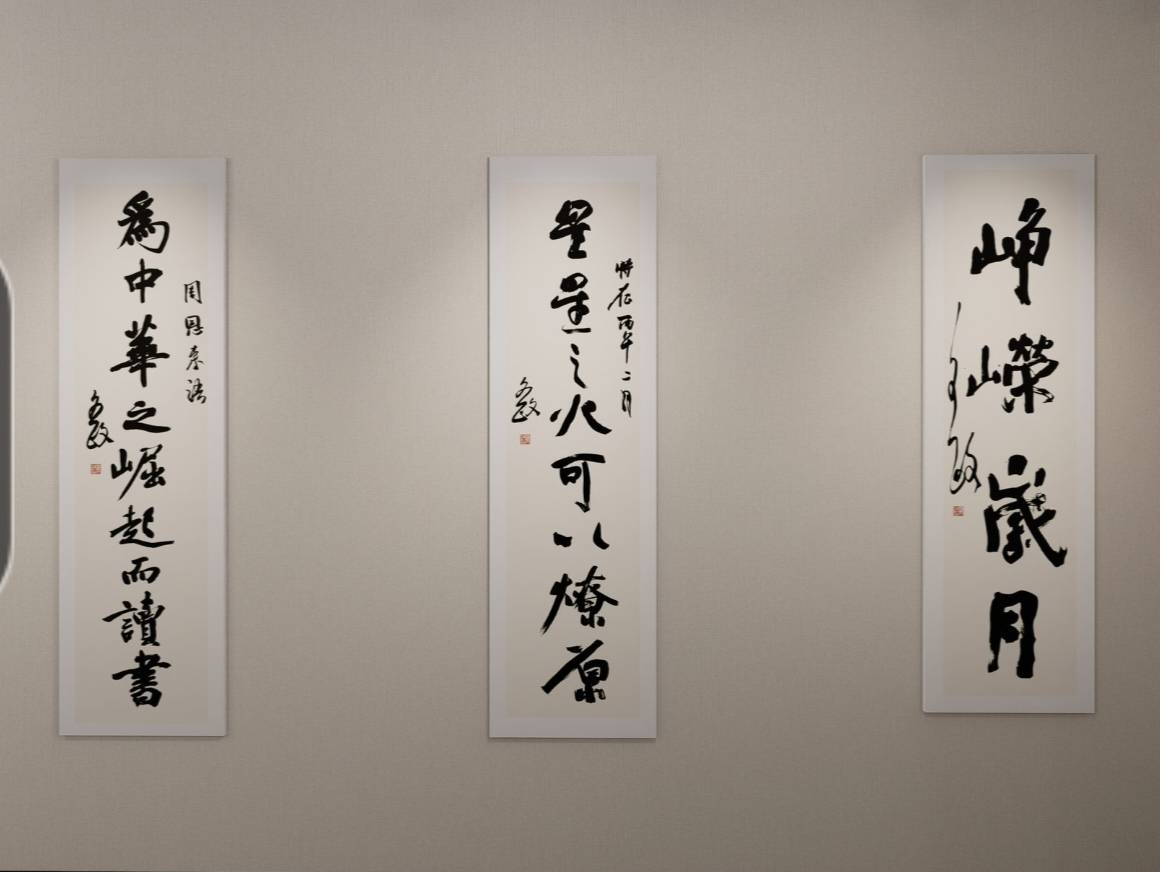 為中華之崛起而讀書
周恩來語
星星之火可以燎原
時在丙午二月
崢嶸歲月